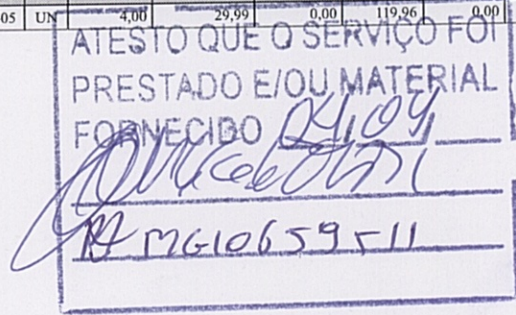 05 UN 4,00 29,99 0,00 119,96 0,00
ATESTO QUE O SERVIÇO FOI
PRESTADO E/OU MATERIAL
FORNECIDO 04,09,
MG10659-11